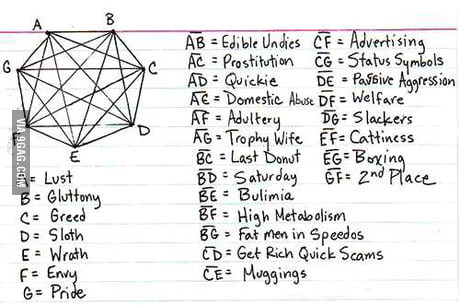 A
B
G
C
D
E
VIA 9GAG.COM
= Lust
B = Gluttony
C = Greed
D = Sloth
E = Wrath
F = Envy
G = Pride
AB = Edible Undies
AC = Prostitution
AD = Quickie
AE = Domestic Abuse
AF = Adultery
AG = Trophy Wife
BC = Last Donut
BD = Saturday
BE = Bulimia
BF = High Metabolism
BG = Fat men in Speedos
CD = Get Rich Quick Scams
CE = Muggings
CF = Advertising
CG = Status Symbols
DE = Passive Aggression
DF = Welfare
DG = Slackers
EF = Cattiness
EG = Boxing
GF = 2nd Place